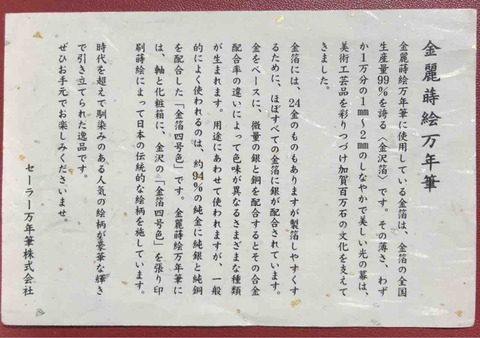 金麗蒔絵万年筆
金麗蒔絵万年筆に使用している金箔は、金箔の全国
生産量99%を誇る〈金沢箔〉です。その薄さ、わず
か1万分の1㎜〜2㎜のしなやかで美しい光の幕は、
美術工芸品を彩りつづけ加賀百万石の文化を支えて
きました。
金箔には、24金のものもありますが製箔しやすくす
るために、ほぼすべての金箔に銀が配合されています。
金をベースに、微量の銀と銅を配合するとその合金
配合率の違いによって色味が異なるさまざまな種類
が生まれます。用途にあわせて使われますが、一般
的によく使われるのは、約94%の純金に純銀と純銅
を配合した「金箔四号色」です。金麗蒔絵万年筆に
は、軸と化粧箱に、金沢の「金箔四号色」を張り印
刷蒔絵によって日本の伝統的な絵柄を施しています。
時代を超えて馴染みのある人気の絵柄が豪華な輝き
で引き立てられた逸品です。
ぜひお手元でお楽しみくださいませ。
セーラー万年筆株式会社